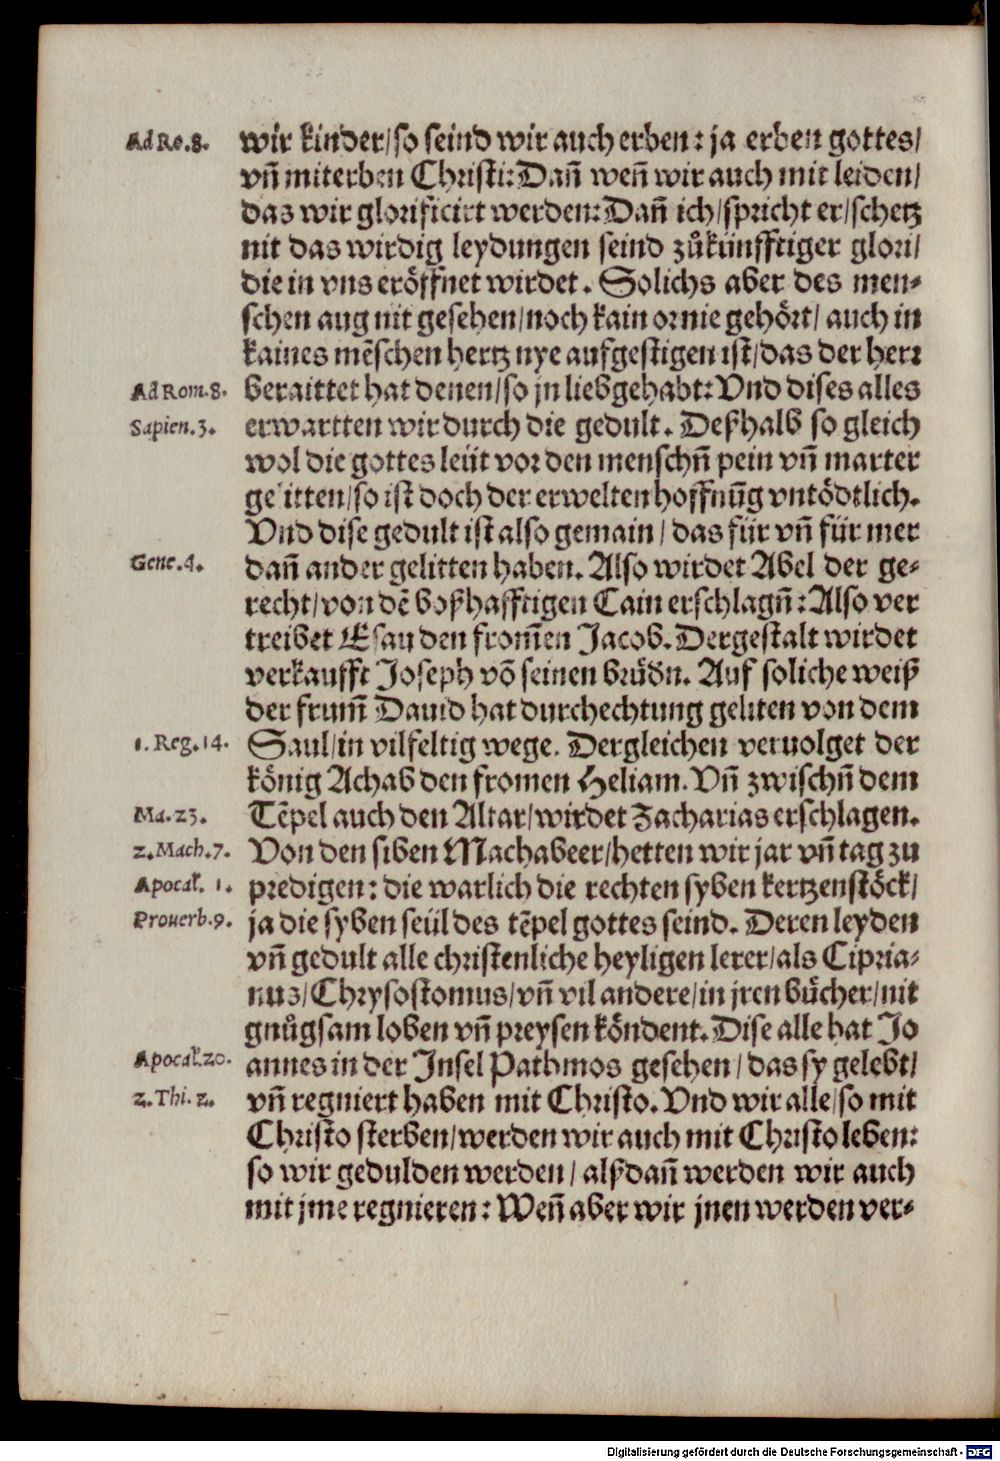 Ad Ro.8. wir kinder/so seind wir auch erben: ja erben gottes/
vñ miterben Christi: Dañ weñ wir auch mit leiden/
das wir glorificirt werden: Dañ ich/spricht er/schetz
nit das wirdig leydungen seind zůkünfftiger glori/
die in vns eröffnet wirdet. Solichs aber des men-
schen aug nit gesehen/noch kain or nie gehört/ auch in
kaines mẽschen hertz nye aufgestigen ist/das der herr
Ad Rom.8. beraittet hat denen/so jn liebgehabt: Vnd dises alles
Sapien.3. erwartten wir durch die gedult. Deßhalb so gleich
wol die gottes leüt vor den menschñ pein vñ marter
gelitten/so ist doch der erwelten hoffnũg vntödtlich.
Vnd dise gedult ist also gemain/ das für vñ für mer
Gene.4. dañ ander gelitten haben. Also wirdet Abel der ge-
recht/von dẽ boßhafftigen Cain erschlagñ: Also ver
treibet Esau den from̃en Jacob. Dergestalt wirdet
verkaufft Joseph võ seinen brüdn. Auf soliche weiß
der frum̃ Dauid hat durchechtung geliten von dem
1. Reg.14. Saul/in vilfeltig wege. Dergleichen veruolget der
könig Achab den fromen Heliam. Vñ zwischñ dem
Ma.23. Tẽpel auch den Altar/wirdet Zacharias erschlagen.
2.Mach.7. Von den siben Machabeer/hetten wir jar vñ tag zu
Apocal. 1. predigen: die warlich die rechten syben kertzenstöck/
Prouerb.9. ja die syben seül des tẽpel gottes seind. Deren leyden
vñ gedult alle christenliche heyligen lerer/als Cipria-
nus/Chrysostomus/vñ vil andere/in jren bücher/nit
gnůgsam loben vñ preysen köndent. Dise alle hat Jo
Apocal.20. annes in der Insel Pathmos gesehen/das sy gelebt/
2.Thi.2. vñ regniert haben mit Christo. Vnd wir alle/so mit
Christo sterben/werden wir auch mit Christo leben:
so wir gedulden werden/ alßdañ werden wir auch
mit jme regnieren: Weñ aber wir jnen werden ver-
Digitalisierung gefördert durch die Deutsche Forschungsgemeinschaft - DFG